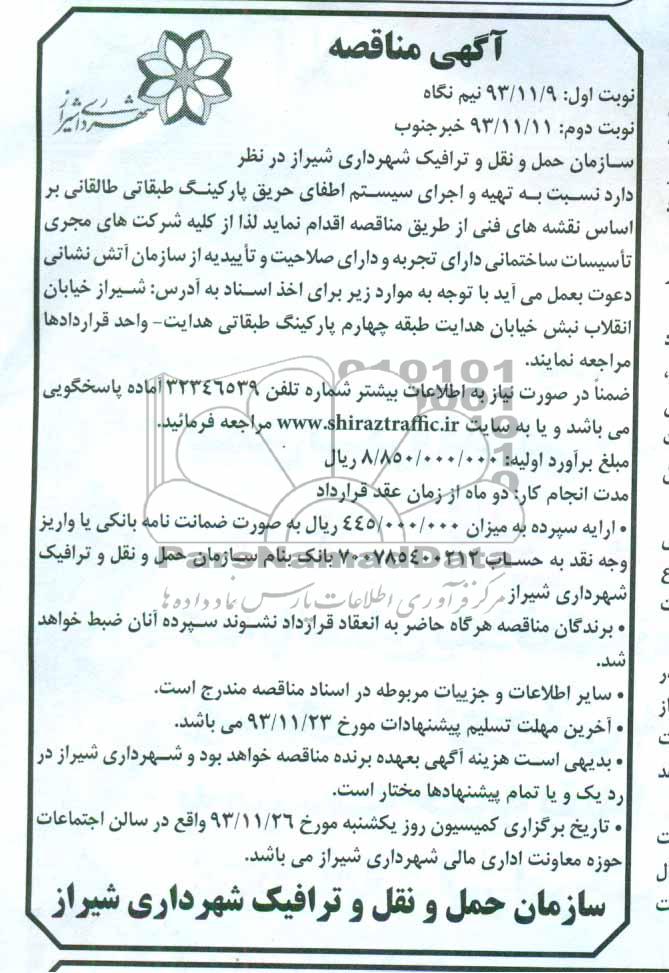 آگهی مناقصه
شهرداری شیراز
نوبت اول: ۹۳/۱۱/۹ نیم نگاه
نوبت دوم: ۹۳/۱۱/۱۱ خبرجنوب
سازمان حمل و نقل و ترافیک شهرداری شیراز در نظر
دارد نسبت به تهیه و اجرای سیستم اطفای حریق پارکینگ طبقاتی طالقانی بر
اساس نقشه های فنی از طریق مناقصه اقدام نماید لذا از کلیه شرکت های مجری
تأسیسات ساختمانی دارای تجربه و دارای صلاحیت و تأییدیه از سازمان آتش نشانی
دعوت بعمل می آید با توجه به موارد زیر برای اخذ اسناد به آدرس: شیراز خیابان
انقلاب نبش خیابان هدایت طبقه چهارم پارکینگ طبقاتی هدایت- واحد قراردادها
مراجعه نمایند.
ضمناً در صورت نیاز به اطلاعات بیشتر شماره تلفن ۳۲۳۴۶۵۳۹ آماده پاسخگویی
می باشد و یا به سایت www.shiraztraffic.ir مراجعه فرمائید.
مبلغ برآورد اولیه: ۸/۸۵۰/۰۰۰/۰۰۰ ریال
مدت انجام کار: دو ماه از زمان عقد قرارداد
• ارایه سپرده به میزان ۴۴۵/۰۰۰/۰۰۰ ریال به صورت ضمانت نامه بانکی یا واریز
وجه نقد به حساب ۷۰۰۷۸۵۴۰۰۲۱۲ بانک بنام سازمان حمل و نقل و ترافیک
شهرداری شیراز
ParsNamadData
مرکز فرآوری اطلاعات پارس نماد داده ها
• برندگان مناقصه هرگاه حاضر به انعقاد قرارداد نشوند سپرده آنان ضبط خواهد
شد.
• سایر اطلاعات و جزییات مربوطه در اسناد مناقصه مندرج است.
• آخرین مهلت تسلیم پیشنهادات مورخ ۹۳/۱۱/۲۳ می باشد.
• بدیهی است هزینه آگهی بعهده برنده مناقصه خواهد بود و شهرداری شیراز در
رد یک و یا تمام پیشنهادها مختار است.
• تاریخ برگزاری کمیسیون روز یکشنبه مورخ ۹۳/۱۱/۲۶ واقع در سالن اجتماعات
حوزه معاونت اداری مالی شهرداری شیراز می باشد.
سازمان حمل و نقل و ترافیک شهرداری شیراز